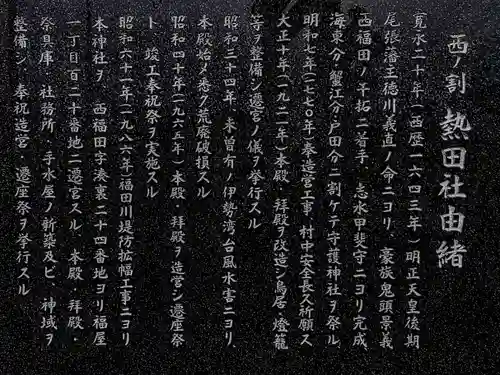 西ノ割 熱田社由緒
(寛永二十年(西歴一六四三年)明正天皇後期
尾張藩主徳川義直ノ命ニヨリ、豪族鬼頭景義
西福田ノ干拓ニ着手、志水甲斐守ニヨリ完成、
海東分・蟹江分・戸田分ニ割ケテ守護神社ヲ祭ル。
明和七年(一七七〇年)奉造営工事 村中安全長久祈願ス
大正十年(一九二一年)本殿・拝殿ヲ改造シ鳥居・燈籠
等ヲ整備シ遷宮ノ儀ヲ挙行スル
昭和三十四年、未曽有ノ伊勢湾台風水害ニヨリ、
本殿始メ悉ク荒廃破損スル
昭和四十年(一九六五年)本殿・拝殿ヲ造営シ遷座祭
ト 竣工奉祝祭ヲ実施スル
昭和六十一年(一九八六年)福田川堤防拡幅工事ニヨリ
本神社ヲ、西福田字湊裏二十四番地ヨリ福屋
一丁目百二十番地ニ遷宮スル 本殿・拝殿・
祭具庫・社務所・手水屋ノ新築及ビ、神域ヲ
整備シ、奉祝造宮・遷座祭ヲ挙行スル